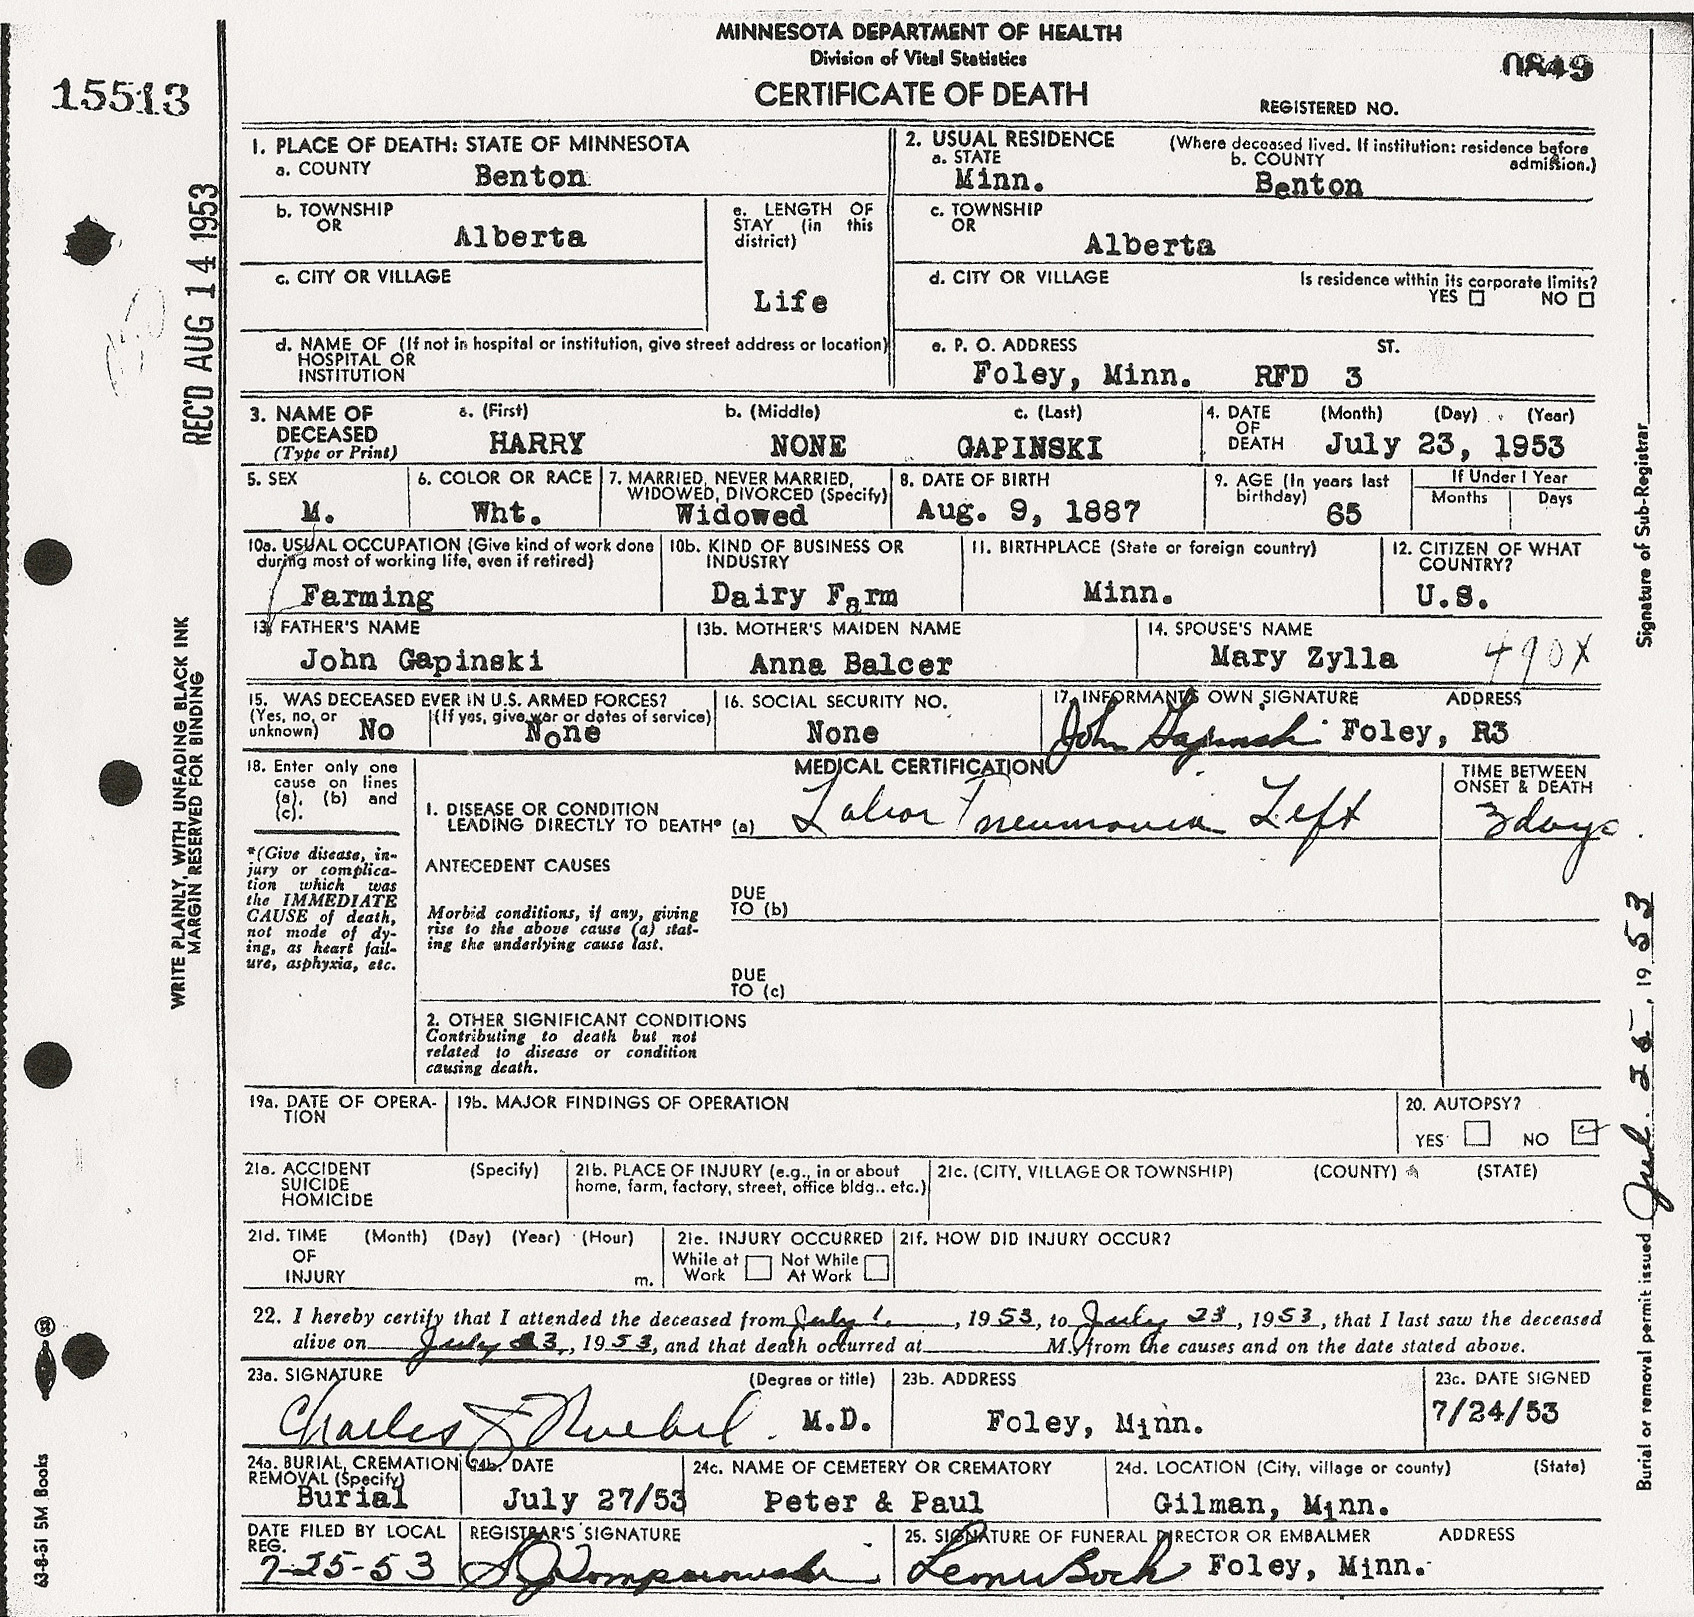 MINNESOTA DEPARTMENT OF HEALTH
Division of Vital Statistics
CERTIFICATE OF DEATH
15513
0849
REGISTERED NO.
REC'D AUG 14 1953
WRITE PLAINLY, WITH UNFADING BLACK INK
MARGIN RESERVED FOR BINDING
63-8-51 5M Books
1. PLACE OF DEATH: STATE OF MINNESOTA
a. COUNTY
Benton
2. USUAL RESIDENCE (Where deceased lived. If institution: residence before admission.)
a. STATE b. COUNTY
Minn. Benton
b. TOWNSHIP
OR
Alberta
e. LENGTH OF
STAY (in this
district)
Life
c. TOWNSHIP
OR
Alberta
c. CITY OR VILLAGE
d. CITY OR VILLAGE Is residence within its corporate limits?
YES NO
d. NAME OF (If not in hospital or institution, give street address or location)
HOSPITAL OR
INSTITUTION
e. P. O. ADDRESS ST.
Foley, Minn. RFD 3
3. NAME OF
DECEASED
(Type or Print)
a. (First) b. (Middle) c. (Last)
HARRY NONE GAPINSKI
4. DATE
OF
DEATH
(Month) (Day) (Year)
July 23, 1953
5. SEX
M.
6. COLOR OR RACE
Wht.
7. MARRIED, NEVER MARRIED,
WIDOWED, DIVORCED (Specify)
Widowed
8. DATE OF BIRTH
Aug. 9, 1887
9. AGE (In years last
birthday) 65
If Under 1 Year
Months Days
10a. USUAL OCCUPATION (Give kind of work done
during most of working life, even if retired)
Farming
10b. KIND OF BUSINESS OR
INDUSTRY
Dairy Farm
11. BIRTHPLACE (State or foreign country)
Minn.
12. CITIZEN OF WHAT
COUNTRY?
U.S.
13. FATHER'S NAME
John Gapinski
13b. MOTHER'S MAIDEN NAME
Anna Balcer
14. SPOUSE'S NAME
Mary Zylla 490X
15. WAS DECEASED EVER IN U.S. ARMED FORCES?
(Yes, no, or
unknown) No
(If yes, give war or dates of service)
None
16. SOCIAL SECURITY NO.
None
17. INFORMANT'S OWN SIGNATURE ADDRESS
John Gapinski Foley, R3
18. Enter only one
cause on lines
(a), (b) and
(c).
*(Give disease, in-
jury or complica-
tion which was
the IMMEDIATE
CAUSE of death,
not mode of dy-
ing, as heart fail-
ure, asphyxia, etc.
MEDICAL CERTIFICATION
TIME BETWEEN
ONSET & DEATH
1. DISEASE OR CONDITION
LEADING DIRECTLY TO DEATH* (a) Lobar Pneumonia Left 3 days
ANTECEDENT CAUSES
Morbid conditions, if any, giving
rise to the above cause (a) stat-
ing the underlying cause last.
DUE
TO (b)
DUE
TO (c)
2. OTHER SIGNIFICANT CONDITIONS
Contributing to death but not
related to disease or condition
causing death.
19a. DATE OF OPERA-
TION
19b. MAJOR FINDINGS OF OPERATION
20. AUTOPSY?
YES NO
21a. ACCIDENT (Specify)
SUICIDE
HOMICIDE
21b. PLACE OF INJURY (e.g., in or about
home, farm, factory, street, office bldg., etc.)
21c. (CITY, VILLAGE OR TOWNSHIP) (COUNTY) (STATE)
21d. TIME (Month) (Day) (Year) (Hour)
OF
INJURY m.
21e. INJURY OCCURRED
While at Not While
Work At Work
21f. HOW DID INJURY OCCUR?
22. I hereby certify that I attended the deceased from July 1, 1953, to July 23, 1953, that I last saw the deceased
alive on July 23, 1953, and that death occurred at M. from the causes and on the date stated above.
23a. SIGNATURE (Degree or title)
Charles M.D.
23b. ADDRESS
Foley, Minn.
23c. DATE SIGNED
7/24/53
24a. BURIAL, CREMATION
REMOVAL (Specify)
Burial
24b. DATE
July 27/53
24c. NAME OF CEMETERY OR CREMATORY
Peter & Paul
24d. LOCATION (City, village or county) (State)
Gilman, Minn.
DATE FILED BY LOCAL
REG.
7-25-53
REGISTRAR'S SIGNATURE
25. SIGNATURE OF FUNERAL DIRECTOR OR EMBALMER ADDRESS
Foley, Minn.
Burial or removal permit issued 25, 1953
Signature of Sub-Registrar